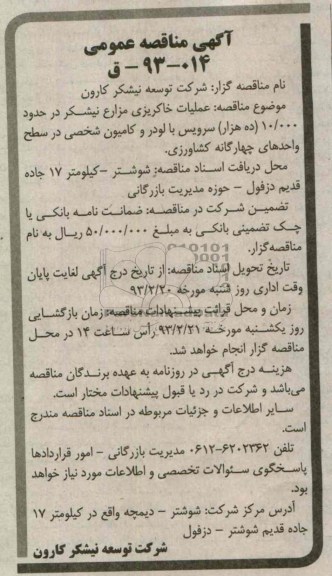 آگهی مناقصه عمومی
۹۳-۰۱۴ – ق
نام مناقصه گزار: شرکت توسعه نیشکر کارون
موضوع مناقصه: عملیات خاکریزی مزارع نیشکر در حدود
۱۰/۰۰۰ (ده هزار) سرویس با لودر و کامیون شخصی در سطح
واحدهای چهارگانه کشاورزی.
محل دریافت اسناد مناقصه: شوشتر –کیلومتر ۱۷ جاده
قدیم دزفول – حوزه مدیریت بازرگانی
تضمین شرکت در مناقصه: ضمانت نامه بانکی یا
چک تضمینی بانکی به مبلغ ۵۰/۰۰۰/۰۰۰ ریال به نام
مناقصه‌گزار.
تاریخ تحویل اسناد مناقصه: از تاریخ درج آگهی لغایت پایان
وقت اداری روز شنبه مورخه ۹۳/۲/۲۰
زمان و محل قرائت پیشنهادات مناقصه: زمان بازگشایی
روز یکشنبه مورخه ۹۳/۲/۲۱ رأس ساعت ۱۴ در محل
مناقصه گزار انجام خواهد شد.
هزینه درج آگهی در روزنامه به عهده برندگان مناقصه
می‌باشد و شرکت در رد یا قبول پیشنهادات مختار است.
سایر اطلاعات و جزئیات مربوطه در اسناد مناقصه مندرج
است.
تلفن ۶۲۰۲۳۶۲-۰۶۱۲ مدیریت بازرگانی – امور قراردادها
پاسخگوی سئوالات تخصصی و اطلاعات مورد نیاز خواهد
بود.
آدرس مرکز شرکت: شوشتر – دیمچه واقع در کیلومتر ۱۷
جاده قدیم شوشتر – دزفول
شرکت توسعه نیشکر کارون